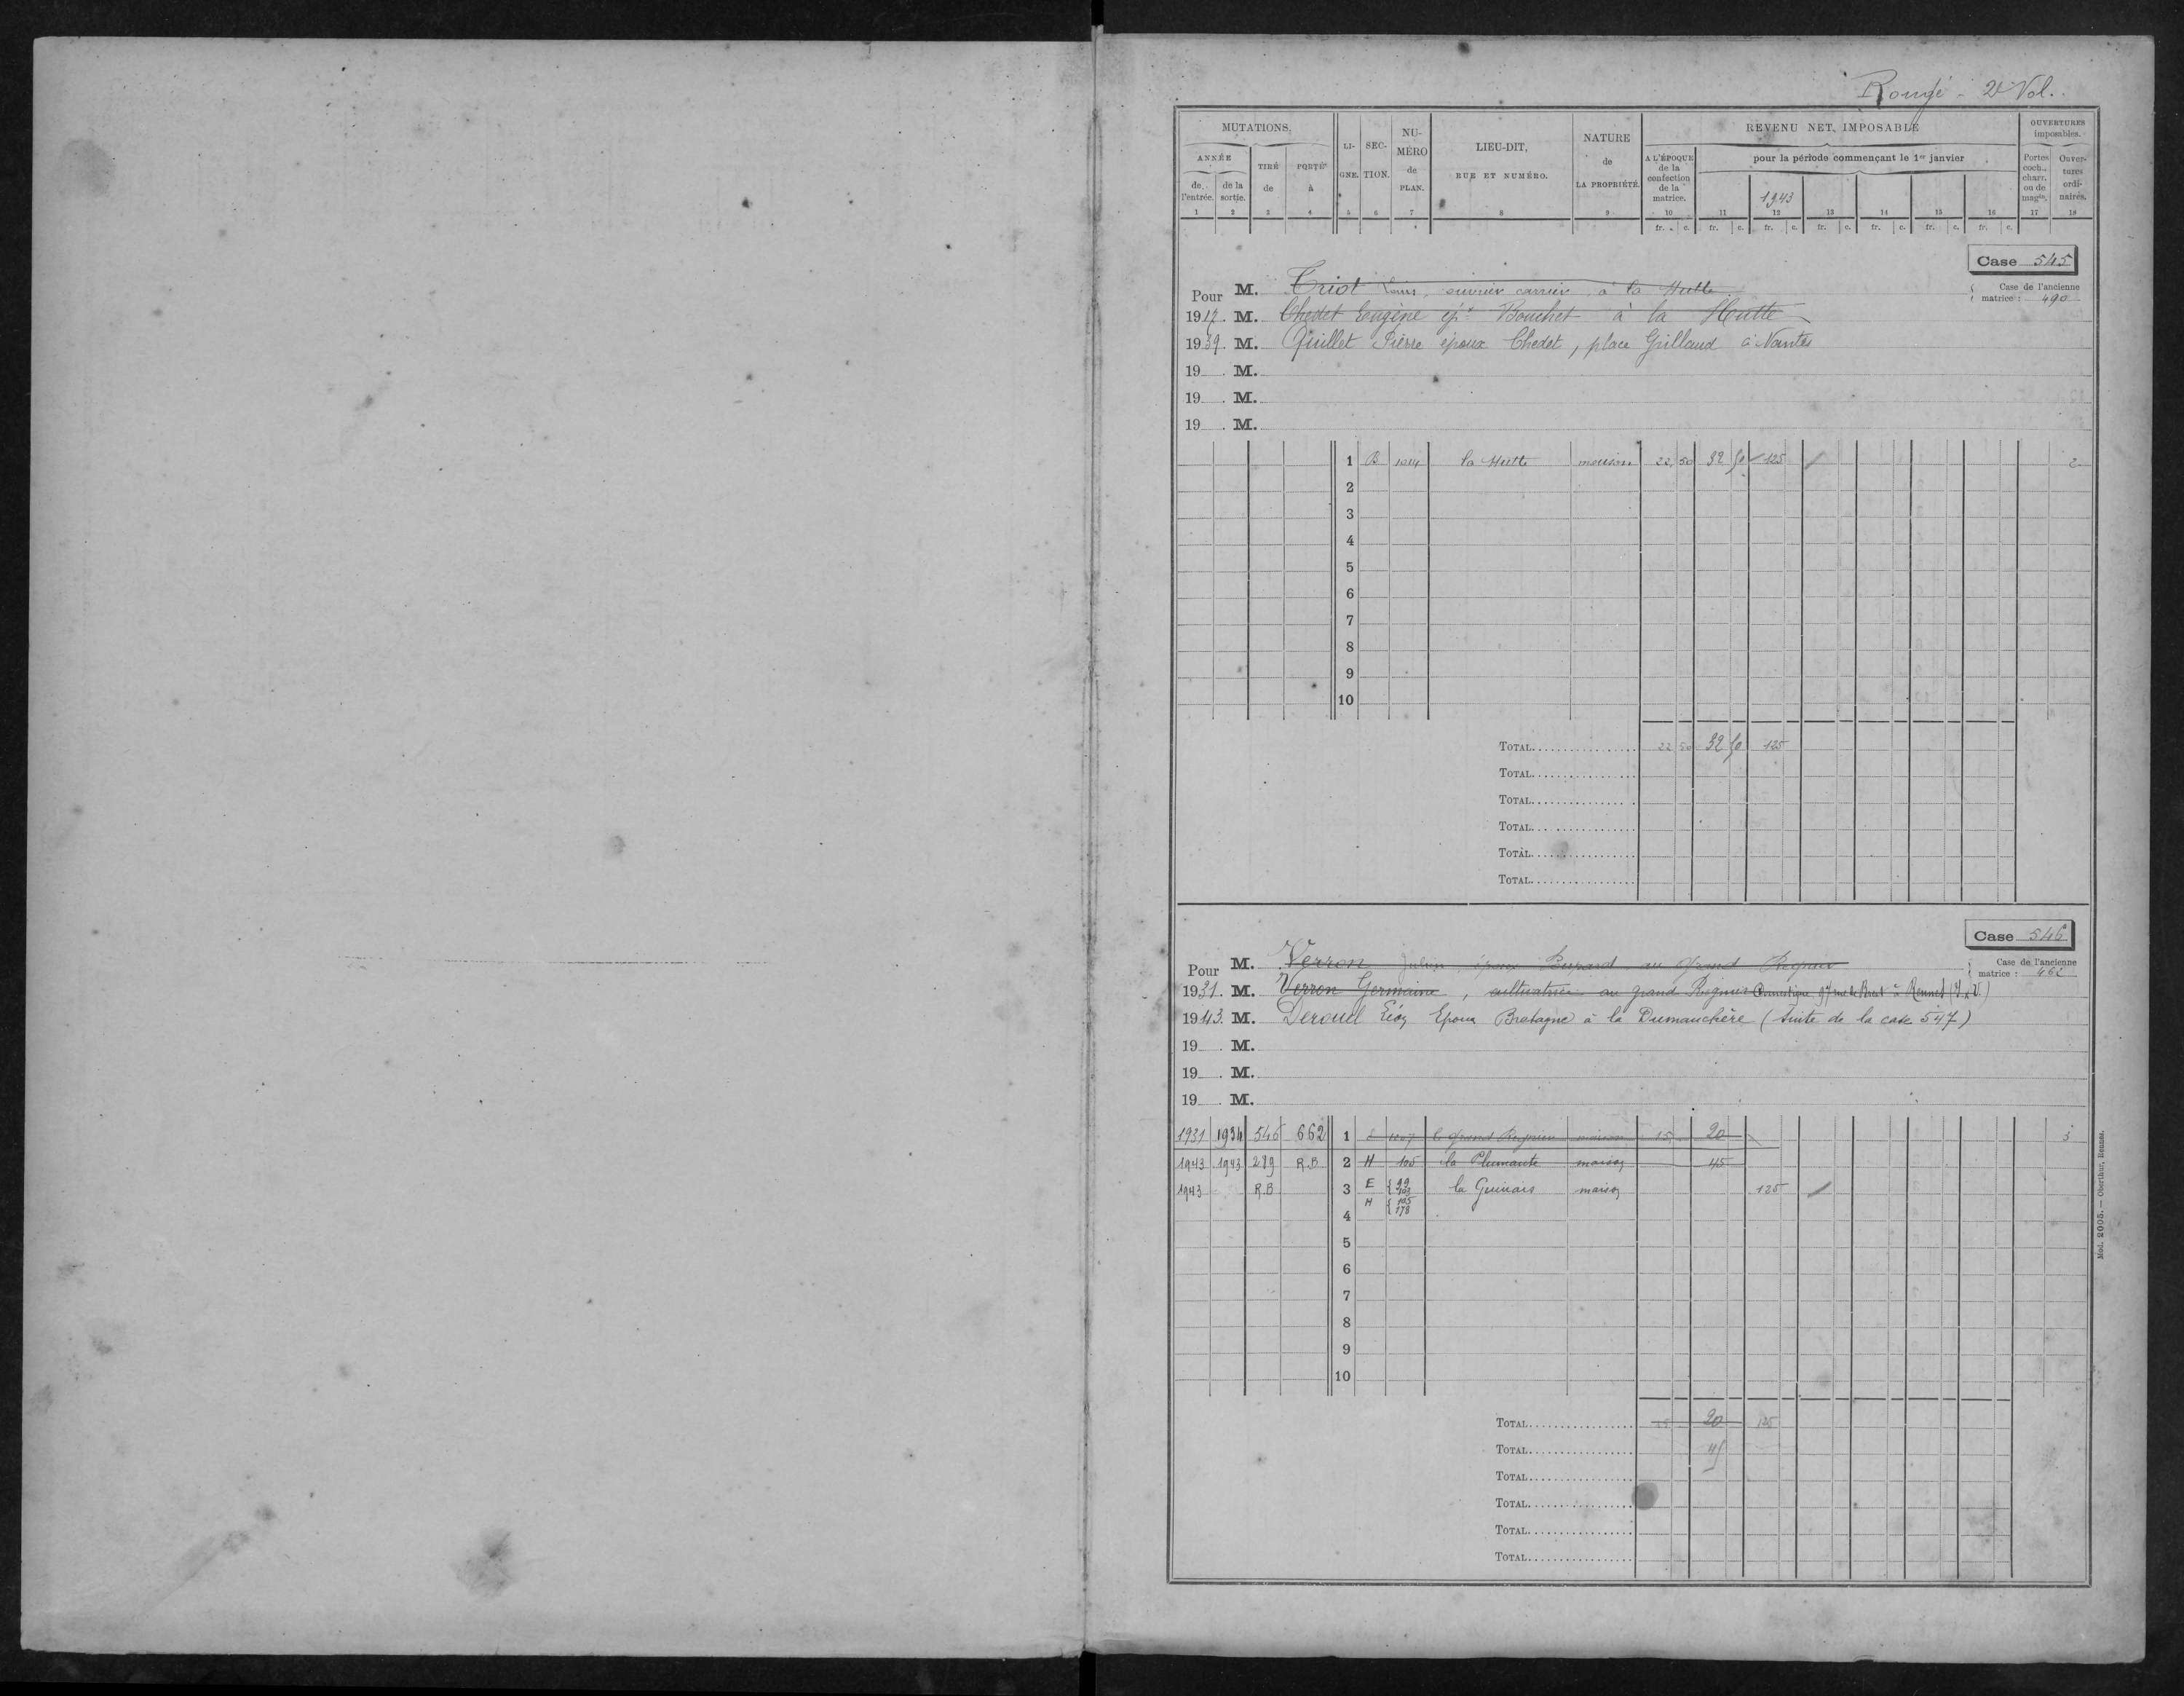 Rougé - 2e Vol.
MUTATIONS.
ANNÉE
de l'entrée.
de la sortie.
TIRÉ de
PORTÉ à
LIGNE.
SECTION.
NUMÉRO de PLAN.
LIEU-DIT, RUE ET NUMÉRO.
NATURE de LA PROPRIÉTÉ.
REVENU NET IMPOSABLE
A L'ÉPOQUE de la confection de la matrice.
pour la période commençant le 1er janvier
1943
OUVERTURES imposables.
Portes coch., charr. ou de magin.
Ouvertures ordinaires.
1 2 3 4 5 6 7 8 9 10 11 12 13 14 15 16 17 18
fr. c. fr. c. fr. c. fr. c. fr. c. fr. c. fr. c.
Case 545
Pour M. Triot Louis, ouvrier carrier à la Hutte
Case de l'ancienne matrice : 490
1917. M. Chedet Eugène épx Bouchet à la Hutte
1939. M. Quillet Pierre époux Chedet, place Grillaud à Nantes
19 . M.
19 . M.
19 . M.
1 B 1014 la Hutte maison 22 50 32 50 125 2
2
3
4
5
6
7
8
9
10
TOTAL 22 50 32 50 125
TOTAL
TOTAL
TOTAL
TOTAL
TOTAL
Case 546
Pour M. Verron Julien, époux au grand Regnier
Case de l'ancienne matrice : 462
1931. M. Verron Germaine, cultivatrice au grand Regnier Domestique 97 rue de Brest à Rennes (I.&V.)
1943. M. Derouel Léon Epoux Bretagne à la Dumanchère (suite de la case 547)
19 . M.
19 . M.
19 . M.
1931 1934 546 662 1 1007 le grand Regnier maison 15 20 3
1943 1943 289 R.B 2 H 105 la Plumante maison 45
1943 R.B 3 E 99 103 la Guinais maison 125
H 105 178
4
5
6
7
8
9
10
TOTAL 15 20 125
TOTAL 45
TOTAL
TOTAL
TOTAL
TOTAL
Mod. 2005. — Oberthur, Rennes.